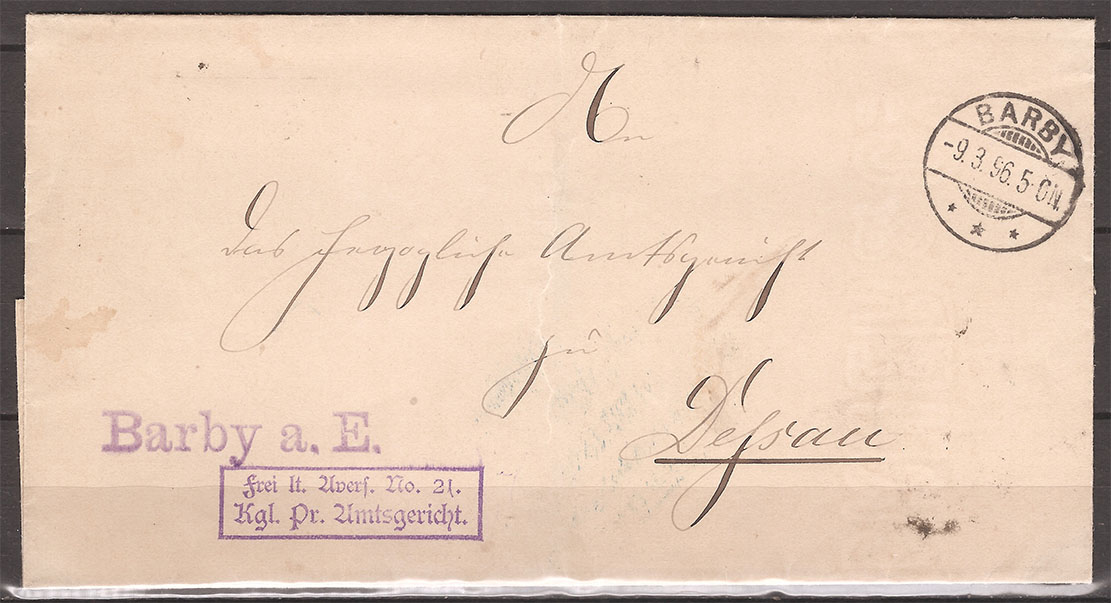 An
BARBY
-9.3.96.5-6N.
das Herzogliche Amtsgericht
zu
Dessau
Barby a. E.
Frei lt. Avers. No. 21.
Kgl. Pr. Amtsgericht.